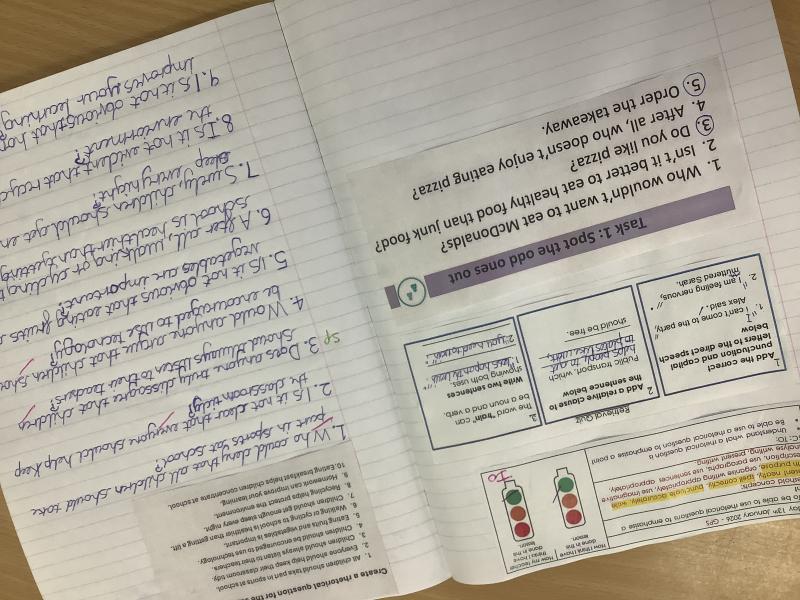 13th January 2026 - GPS
be able to use rhetorical questions to emphasise a
Understand what a rhetorical question is
Be able to use a rhetorical question to emphasise a point
How I think I have done in this lesson.
How my teacher thinks I have done in this lesson.
IO
Retrieval Quiz
1. Add the correct punctuation and capital letters to the direct speech below
1. "I can't come to the party,"
Alex said.
2. "I am feeling nervous,"
muttered Sarah.
2 Add a relative clause to the sentence below
Public transport, which
helps people get
to places
should be free.
3. The word "train" can
be a noun and a verb.
Write two sentences
showing both uses.
Task 1: Spot the odd ones out
1. Who wouldn't want to eat McDonalds?
2. Isn't it better to eat healthy food than junk food?
3. Do you like pizza?
4. After all, who doesn't enjoy eating pizza?
5. Order the takeaway.
Create a rhetorical question for the
1. All children should take part in sports at school.
2. Everyone should help keep their classroom tidy.
3. Children should always listen to their teachers.
4. Children should be encouraged to use technology.
5. Eating fruits and vegetables is important.
6. Walking or cycling to school is healthier than getting a lift.
7. Children should get enough sleep every night.
8. Recycling helps protect the environment.
9. Homework can improve your learning.
10. Eating breakfast helps children concentrate at school.
1. Who could deny that all children should take
part in sports at school?
2. Is it not clear that everyone should help keep
the classroom tidy?
3. Does anyone truly dissagree that children
should always listen to their teachers?
SP
4. Would anyone argue that children should
be encouraged to use technology?
5. Is it not obvious that eating fruits
vegetables are important?
6. After all, walking or cycling to
school is healthier than getting
7. Surely, children should get
sleep every night?
8. Is it not evident that
the enviorment?
9. Is it not obvious that
improves your learning?